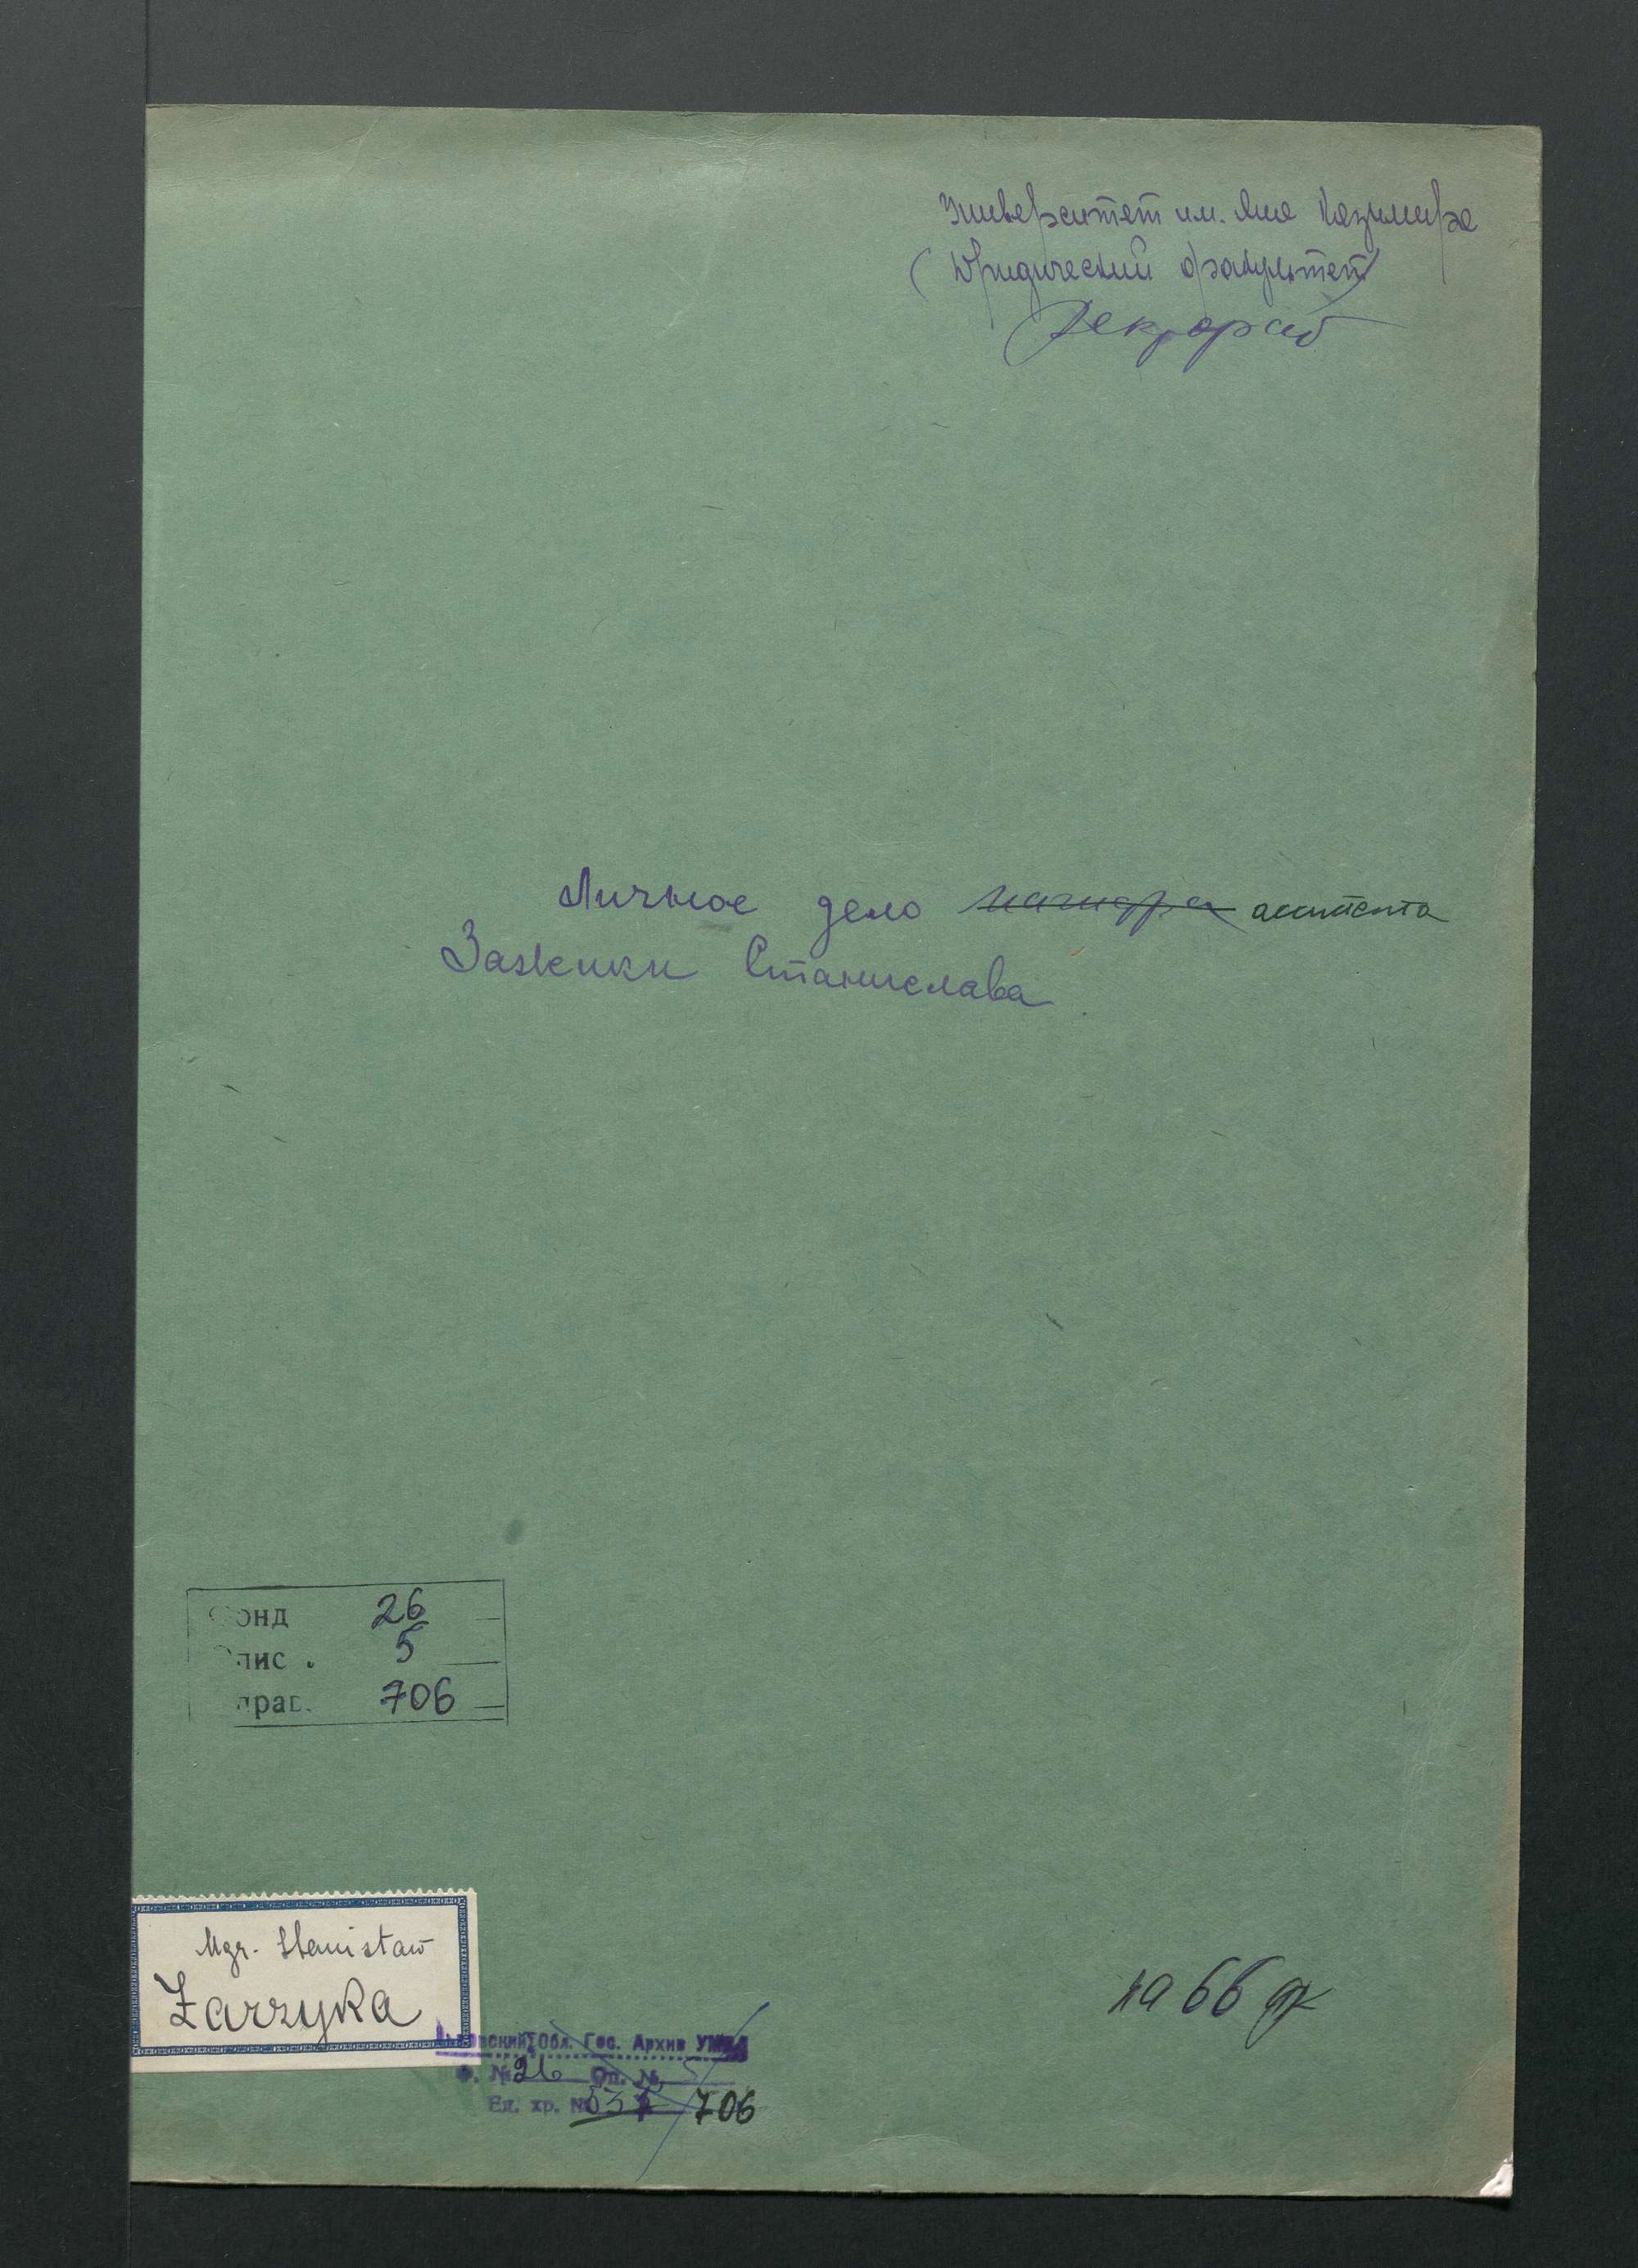 Университет им. Яна Казимира
(Юридический факультет)
Ректорат
Личное дело магистра ассистента
Зажеики Станислава
Фонд 26
Опис. 5
Справ. 706
Mgr. Stanisław
Zarzyka
Львовский Обл. Гос. Архив УМВД
Ф. № 26 Оп. № 5
Ед. хр. № 537 706
на 66